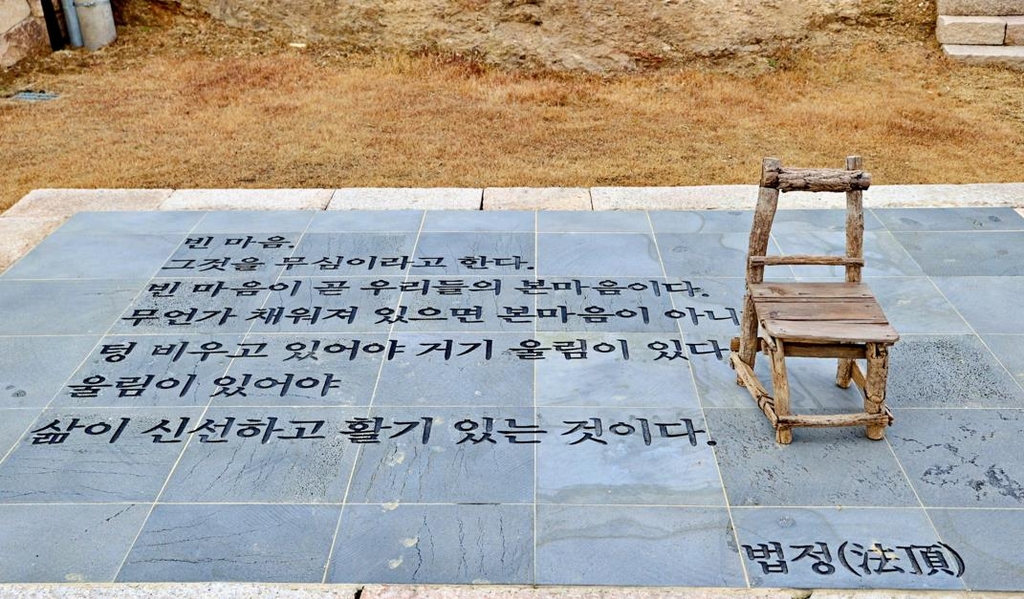 빈 마음,
그것을 무심이라고 한다.
빈 마음이 곧 우리들의 본마음이다.
무언가 채워져 있으면 본마음이 아니
텅 비우고 있어야 거기 울림이 있다
울림이 있어야
삶이 신선하고 활기 있는 것이다.
법정(法頂)